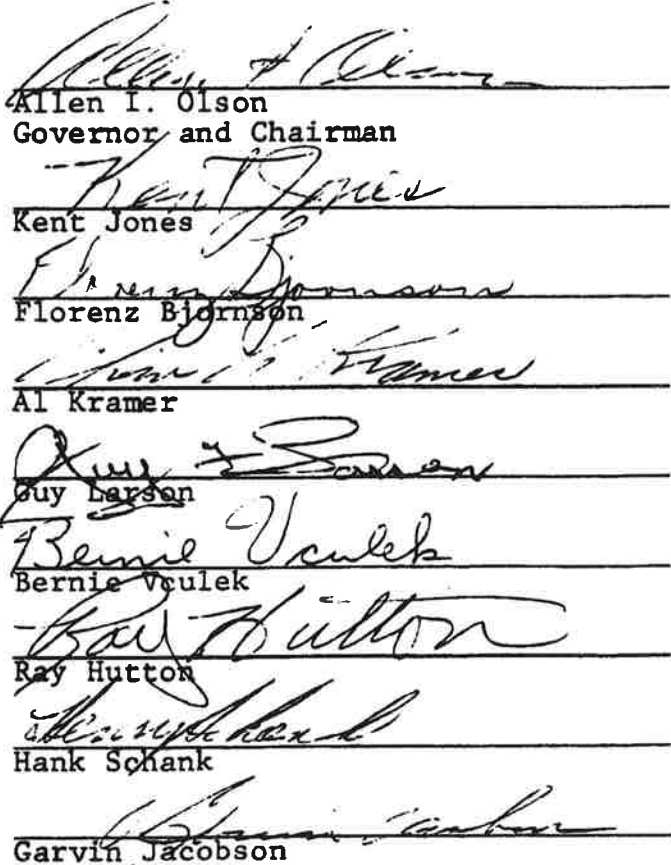 Allen I Olson
Allen I. Olson
Governor and Chairman
Kent Jones
Kent Jones
Florenz Bjornson
Florenz Bjornson
Kramer
Al Kramer
Guy Larson
Guy Larson
Bernie Vculek
Bernie Vculek
Ray Hutton
Ray Hutton
Henry Schank
Hank Schank
Garvin Jacobson
Garvin Jacobson